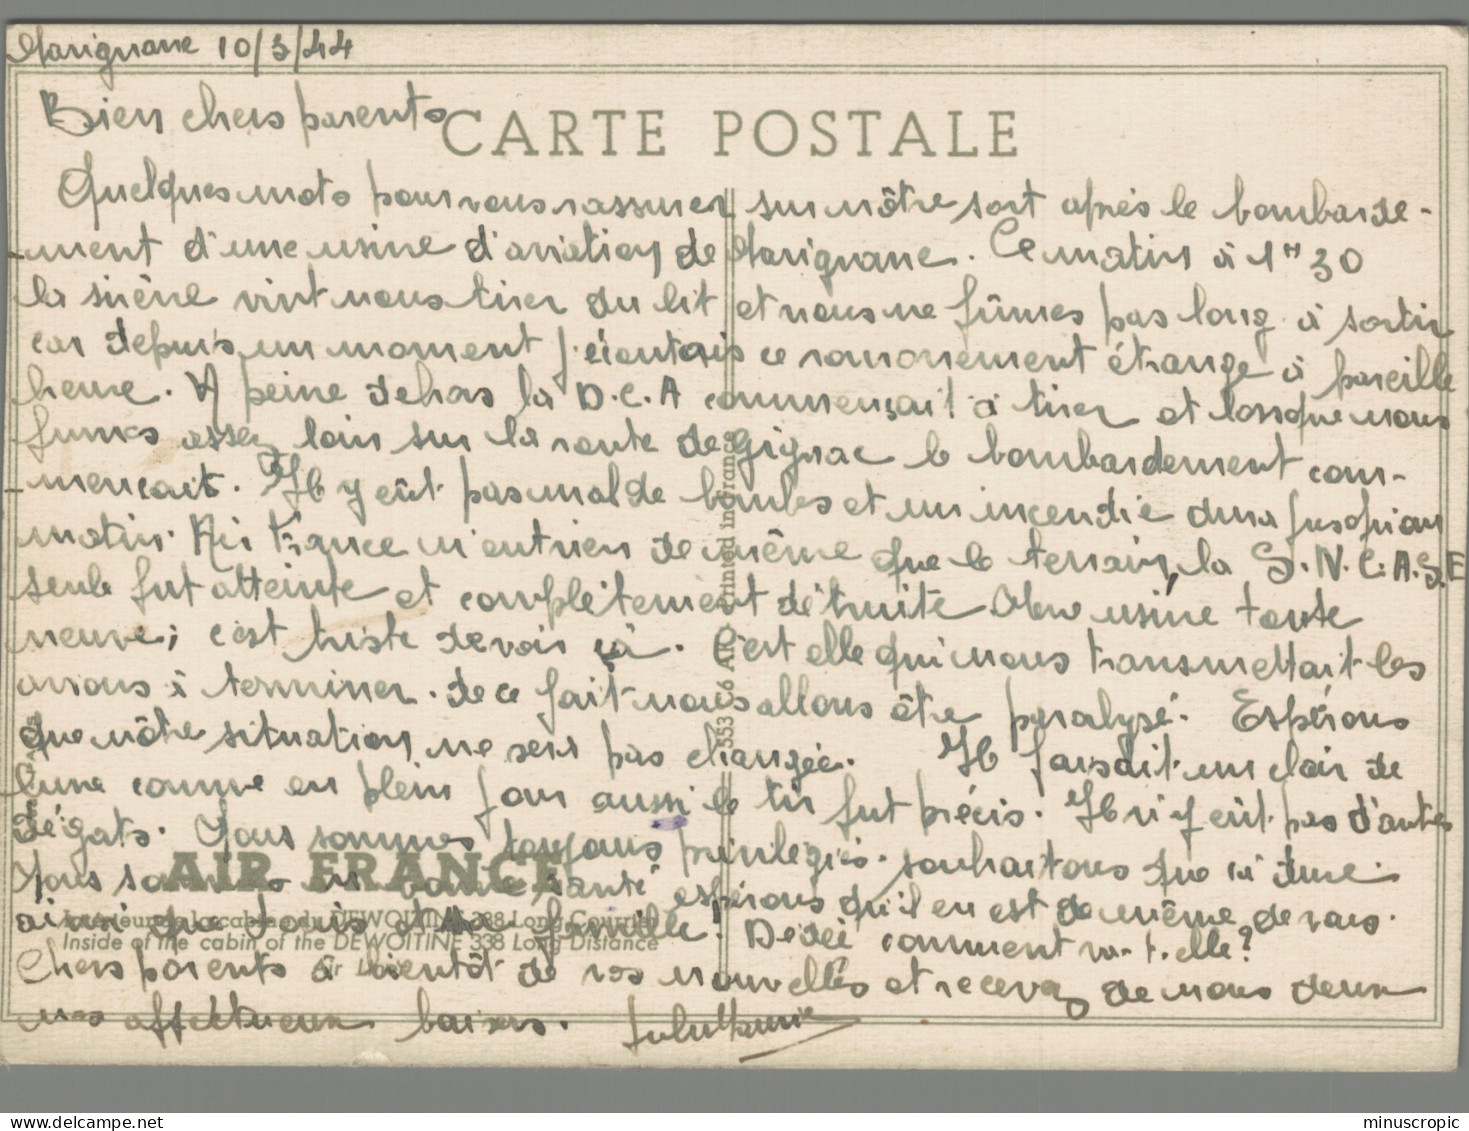 Marignane 10/3/44
Bien chers parents
CARTE POSTALE
Quelques mots pour vous rassurer sur nôtre sort après le bombarde-
ment d'une usine d'aviation de Marignane. Ce matin à 1H30
la sirène vint nous tirer du lit et nous ne fûmes pas long à sortir
car depuis un moment j'écoutais ce ronronement étrange à pareille
heure. A peine dehors la D.C.A commençait à tirer et lorsque nous
fumes assez loin sur la route de Gignac le bombardement com-
mençait. Il y eût pas mal de bombes et un incendie dura jusqu'au
matin. Air France n'eut rien de même que le terrain, la S.N.C.A.S.E
seule fut atteinte et complètement détruite une usine toute
neuve; c'est triste de voir çà. C'est elle qui nous transmettait les
avions à terminer. de ce fait nous allons être paralysé. Espérons
que nôtre situation ne sera pas changée. Il faisait un clair de
lune comme en plein jour aussi le tir fut précis. Il n'y eût pas d'autres
dégats. Nous sommes toujours privilégiés. souhaitons que çà dure.
Nous sommes en bonne santé espérons qu'il en est de même de vous
ainsi que toute la famille! Dédée comment va-t-elle?
Chers parents à bientôt de vos nouvelles et recevez de nous deux
nos affectueux baisers.
AIR FRANCE
Intérieur de la cabine du DEWOITINE 338 Long Courrier
Inside of the cabin of the DEWOITINE 338 Long Distance
Air Liner
553 C6 AR - Printed in France
minuscropic